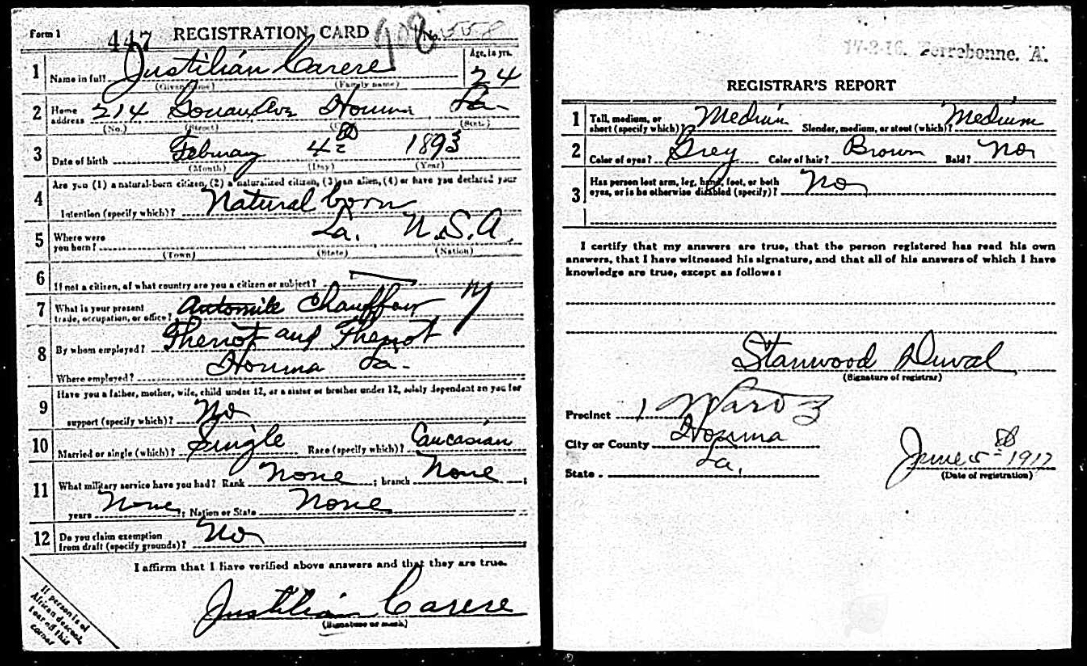 Form 1
447 REGISTRATION CARD 908 No. 558
1 Name in full Justilián Carere Age, in yrs. 24
(Given name) (Family name)
2 Home address 214 Houma La.
(No.) (Street) (State)
3 Date of birth Februay 4th 1893
(Month) (Day) (Year)
4 Are you (1) a natural-born citizen, (2) a naturalized citizen, (3) an alien, (4) or have you declared your
intention (specify which)? Natural born
5 Where were you born? La. U.S.A.
(Town) (State) (Nation)
6 If not a citizen, of what country are you a citizen or subject?
7 What is your present trade, occupation, or office? Chauffeur
8 By whom employed? Theriot and Theriot
Where employed? Houma La.
9 Have you a father, mother, wife, child under 12, or a sister or brother under 12, solely dependent on you for
support (specify which)? No
10 Married or single (which)? Single Race (specify which)? Caucasian
11 What military service have you had? Rank None ; branch None ;
years None ; Nation or State None
12 Do you claim exemption from draft (specify grounds)? No
I affirm that I have verified above answers and that they are true.
Justilián Carere
(Signature or mark)
If person is of
African descent,
tear off this
corner
17-2-16. Terrebonne. A.
REGISTRAR'S REPORT
1 Tall, medium, or short (specify which)? Medium Slender, medium, or stout (which)? Medium
2 Color of eyes? Grey Color of hair? Brown Bald? No
3 Has person lost arm, leg, hand, foot, or both eyes, or is he otherwise disabled (specify)? No
I certify that my answers are true, that the person registered has read his own
answers, that I have witnessed his signature, and that all of his answers of which I have
knowledge are true, except as follows:
Stanwood Duval
(Signature of registrar)
Precinct 1 Ward 3
City or County Houma
State La.
June 5th 1917
(Date of registration)